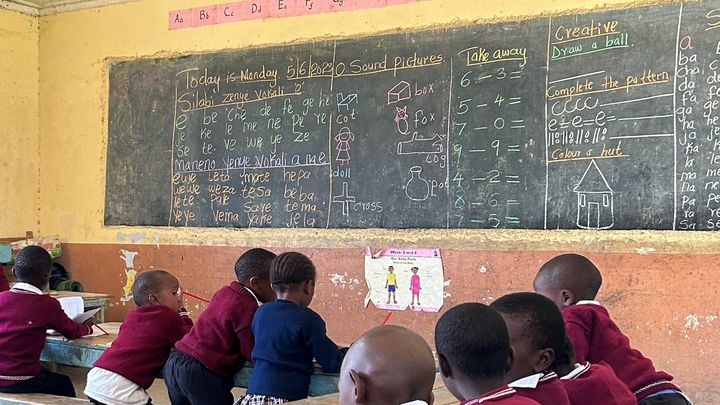 Aa Bb Cc Dd Ee Ff Gg H
Today is Monday 5/6/2023
Silabi zenye vokali 'e'
e be che de fe ge he
je ke le me ne pe re
se te ve we ye ze
Maneno yenye vokali a na e
ewe leta mate hepa
wewe weza tesa beba
lete pale sare tema
yeye vema yake jela
O Sound pictures
cot
box
fox
doll
log
cross
pot
Take away
6 - 3 =
5 - 4 =
7 - 0 =
9 - 9 =
4 - 2 =
8 - 6 =
7 - 5 =
Creative
Draw a ball
Complete the pattern
Colour a hut
a
ba
cha
da
fa
ga
ha
ja
ka
la
ma
na
pa
ra
sa
Week: 5 and 6
Our Body Parts